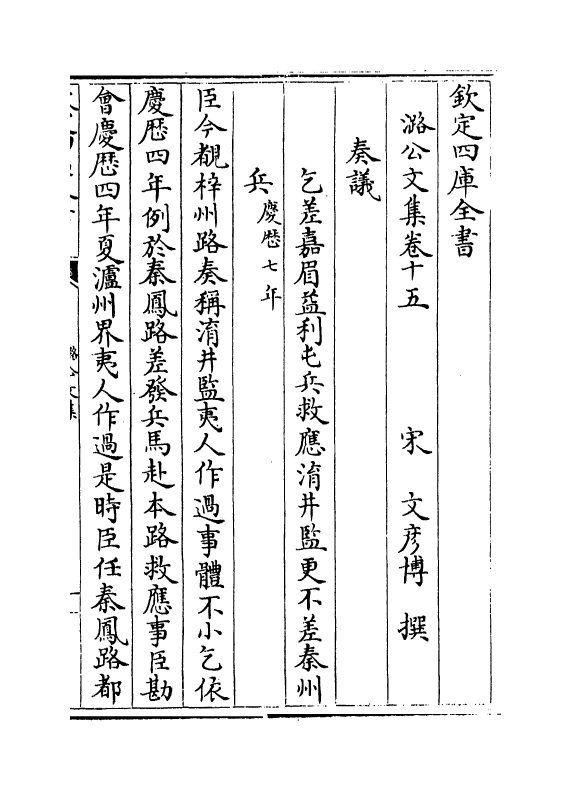 欽定四庫全書
潞公文集卷十五　宋　文彦博　撰
奏議
乞差嘉眉益利屯兵救應淯井監更不差秦州
兵慶厯七年
臣今覩梓州路奏稱淯井監夷人作過事體不小乞依
慶厯四年例於秦鳳路差發兵馬赴本路救應事臣勘
會慶厯四年夏瀘州界夷人作過是時臣任秦鳳路都
潞公文集
一